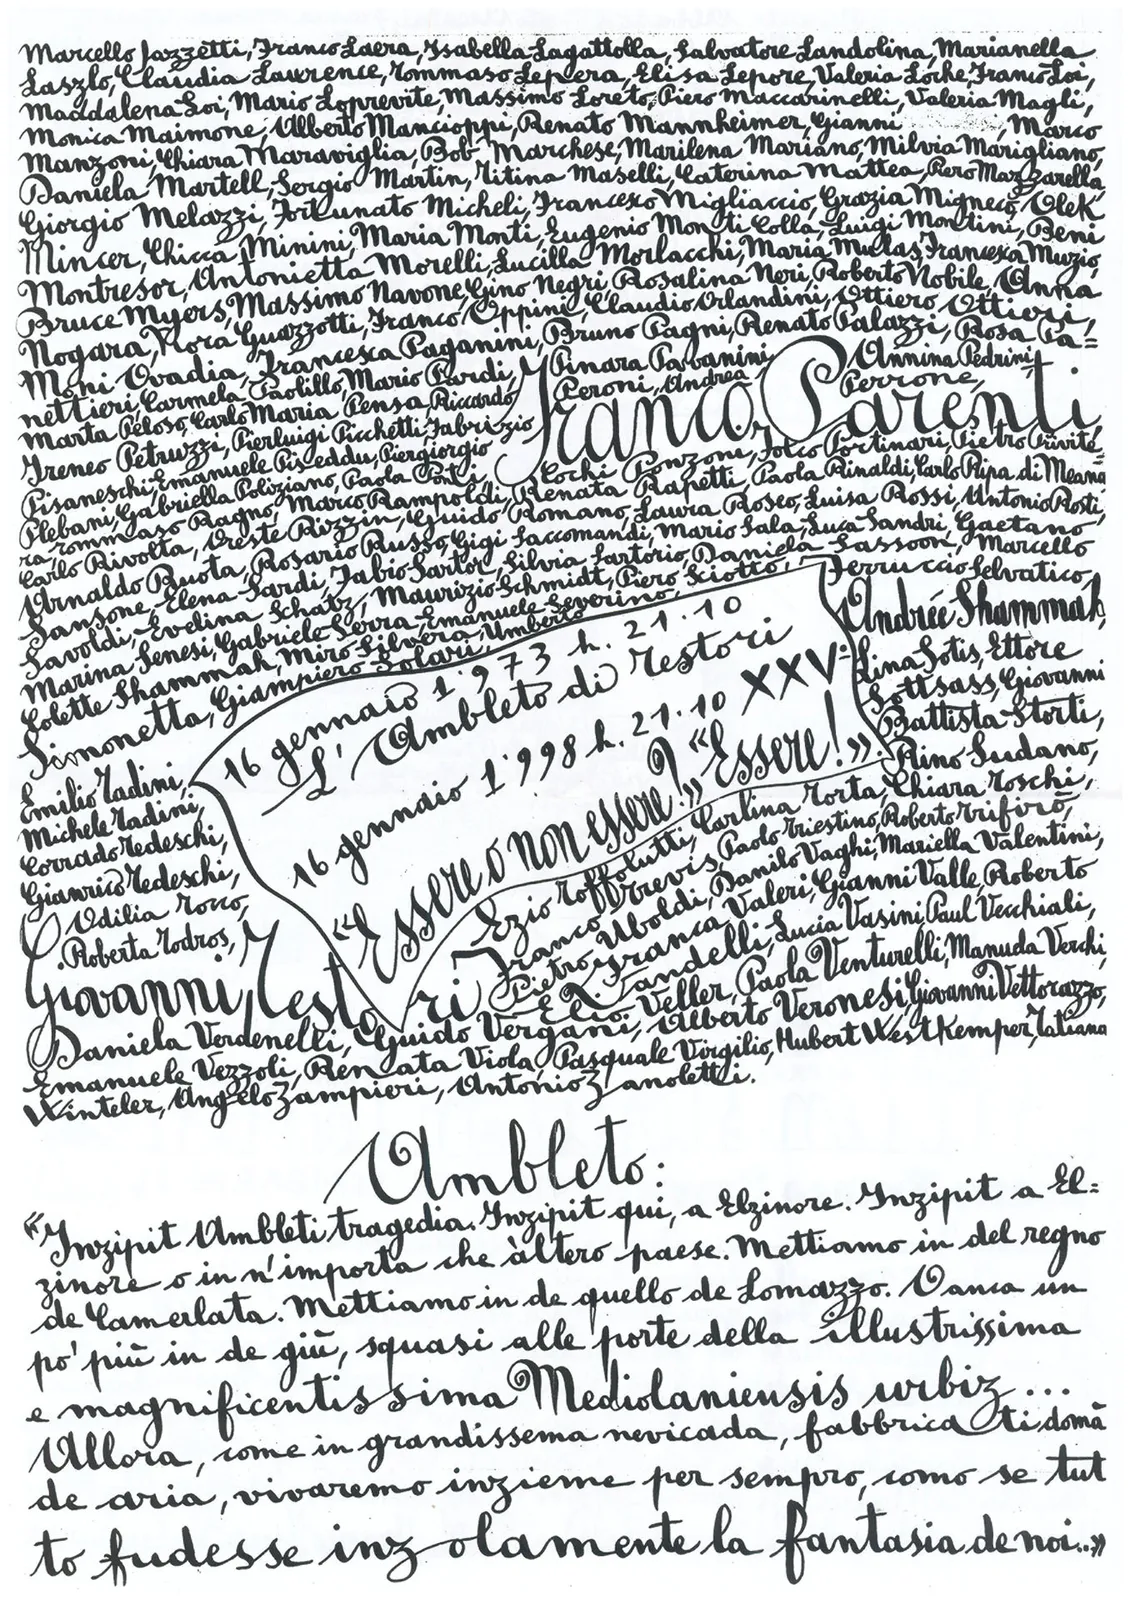 Marcello Jazzetti, Franco Laera, Isabella Lagattolla, Salvatore Landolina, Marianella
Laszlo, Claudia Laurence, Tommaso Lepera, Elisa Lepore, Valeria Loche, Franco Loi,
Maddalena Loi, Mario Loprevite, Massimo Loreto, Piero Maccarinelli, Valeria Magli,
Monica Maimone, Alberto Mancioppi, Renato Mannheimer, Gianni , Marco
Manzoni, Chiara Maraviglia, Bob Marchese, Marilena Mariano, Milvia Marigliano,
Daniela Martell, Sergio Martin, Titina Maselli, Caterina Mattea, Piero Mazzarella,
Giorgio Melazzi, Fortunato Micheli, Francesco Migliaccio, Grazia Migneco, Olek
Mincer, Chicca Minini, Maria Monti, Eugenio Monti Colla, Luigi Montini, Beni
Montresor, Antonietta Morelli, Lucilla Morlacchi, Maria Mulas, Francesca Muzio,
Bruce Myers, Massimo Navone, Gino Negri, Rosalina Neri, Roberto Nobile, Anna
Nogara, Nora Guazzotti, Franco Oppini, Claudio Orlandini, Ottiero Ottieri,
Moni Ovadia, Francesca Paganini, Bruno Pagni, Renato Palazzi, Rosa Pa=
nettieri, Carmela Paolillo, Mario Pardi, Pinara Pavanini, Annina Pedrini,
Marta Peloso, Carlo Maria Pensa, Riccardo Peroni, Andrea Perrone,
Franco Parenti,
Ireneo Petruzzi, Pierluigi Picchetti, Fabrizio
Pisaneschi, Emanuele Piseddu, Piergiorgio
Plebani, Gabriella Poliziano, Paola Ponti, Cochi Ponzone, Folco Portinari, Pietro Pirité=
ra, Tommaso Ragno, Marco Rampoldi, Renata Rapetti, Paola Rinaldi, Carlo Ripa di Meana
Carlo Rivolta, Oreste Rizzin, Guido Romano, Laura Rosco, Luisa Rossi, Antonio Rosti,
Arnaldo Ruota, Rosario Russo, Gigi Saccomandi, Mario Sala, Luca Sandri, Gaetano
Sansone, Elena Sardi, Fabio Sartor, Silvia Sartorio, Daniela Sassoon, Marcello
Savoldi, Evelina Schatz, Maurizio Schmidt, Piero Sciotto, Ferruccio Selvatico,
Marina Senesi, Gabriele Serra, Emanuele Severino,
Andrée Shammah,
Colette Shammah, Miro Silvera, Umberto
Simonetta, Giampiero Solari,
Lina Sotis, Ettore
Sottsass, Giovanni
Battista Storti,
Rino Sudano,
16 gennaio 1'973 h. 21.10
L'Ambleto di Testori
16 gennaio 1'998 h. 21.10 XXV°
«Essere o non essere?» «Essere!»
Emilio Tadini,
Michele Tadini,
Corrado Tedeschi,
Gianrico Tedeschi,
Odilia Tocco,
Roberta Todros,
Giovanni Testori
Ezio Toffolutti, Carlina Torta, Chiara Toschi,
Franco Trevis, Paolo Triestino, Roberto Trifirò,
Pietro Uboldi, Danilo Vaghi, Mariella Valentini,
Franca Valeri, Gianni Valle, Roberto
Vandelli, Lucia Vasini, Paul Vecchiali,
Elio Veller, Paola Venturelli, Manuda Verchi,
Daniela Verdenelli, Guido Vergani, Alberto Veronesi, Giovanni Vettorazzo,
Emanuele Vezzoli, Renata Viola, Pasquale Virgilio, Hubert Westkemper, Tatiana
Winteler, Angelo Zampieri, Antonio Zanoletti.
Ambleto:
«Inzipit Ambleti tragedia. Inzipit qui, a Elzinore. Inzipit a El=
zinore o in n'importa che àltero paese. Mettiamo in del regno
de Camerlata. Mettiamo in de quello de Lomazzo. O anca un
po' più in de giù, squasi alle porte della illustrissima
e magnificentissima Mediolaniensis urbiz...
Allora, come in grandissema nevicada, fabbricati domà
de aria, vivaremo inzieme per sempro, como se tut
to fudesse inzolamente la fantasia de noi...»